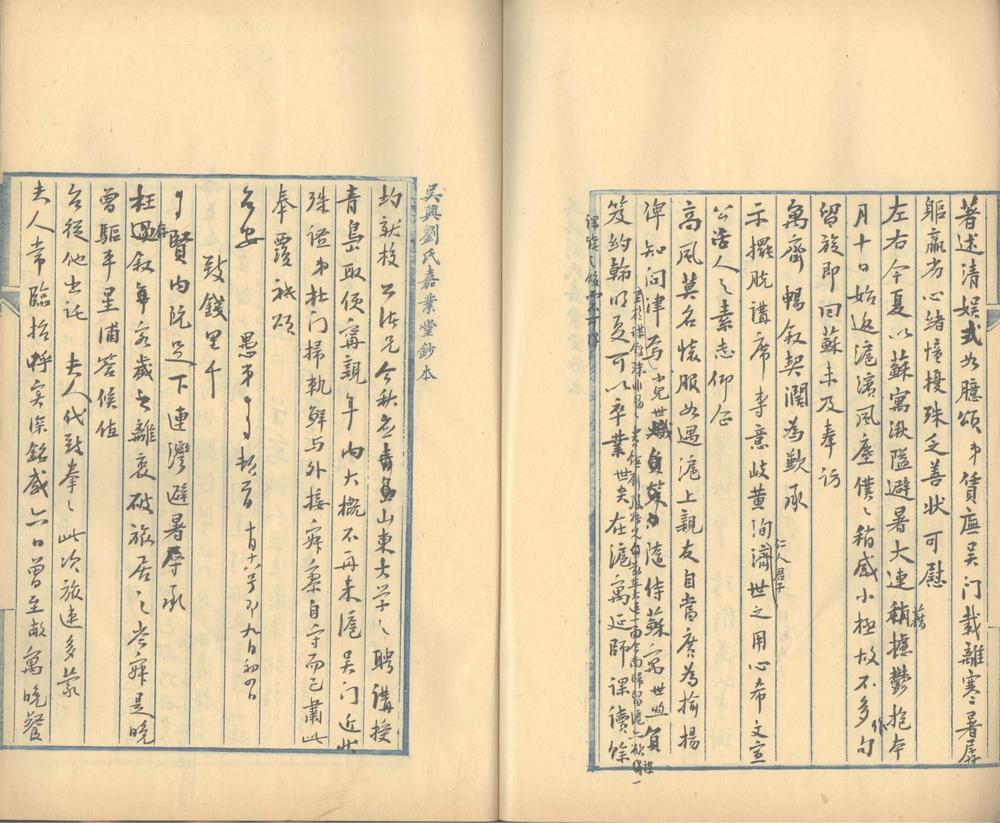 著述清娛式如臆頌弟賃廡吳門載離寒暑孱
軀羸劣心緒憧擾殊乏善狀可慰
左右今夏以蘇寓湫隘避暑大連藉攄鬱抱本
月十日始返滬濱風塵僕僕稍感小極故不多作句
留旋即回蘇未及奉訪
寓齋暢敘契闊為歉承
示擺脫講席專意岐黃洵仁人君子濟世之用心希文宣
公活人之素志仰企
高風莫名懷服如遇滬上親友自當廣為揄揚
俾知問津焉小兒世 負笈隨侍蘇寓世 負
笈約翰明夏可以卒業世 在滬寓延師課讀餘
課讀之
吳興劉氏嘉業堂鈔本
均就校 兄今秋應青島山東大學之聘講授
青島取便甯親年內大概不再來滬吳門近狀
殊證弟杜門掃軌鮮與外接寂寥自守而已肅此
奉覆祇頌
台安 愚弟 頓首 十月十六号即九月初四日
致錢里千
賢內阮足下連灣避暑辱承
枉過存敘 離 旅居之岑寂是晚
曾驅車星浦答候值
台從他出託 夫人代致拳拳此次旅連多蒙
夫人常臨招呼實深銘感六日曾至敝寓晚餐